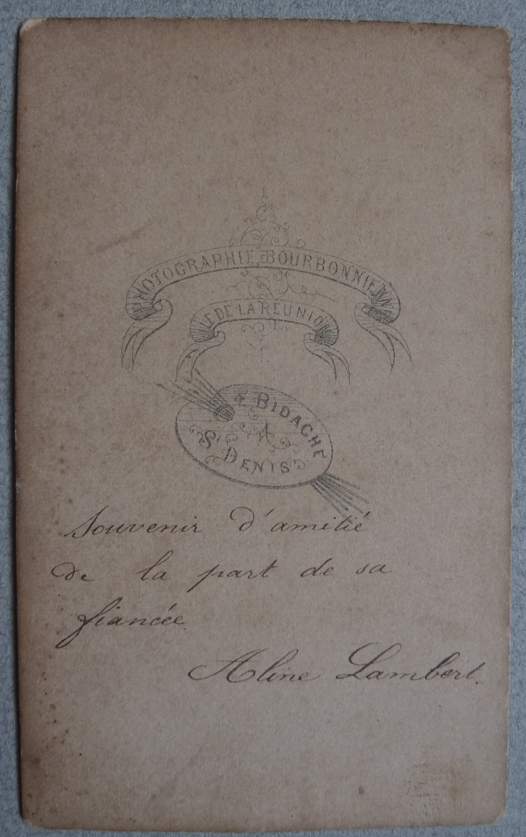 PHOTOGRAPHIE BOURBONNIENNE
ILE DE LA RÉUNION
E BIDACHE
A
St DENIS
Souvenir d'amitié
de la part de sa
fiancée
Aline Lambert.